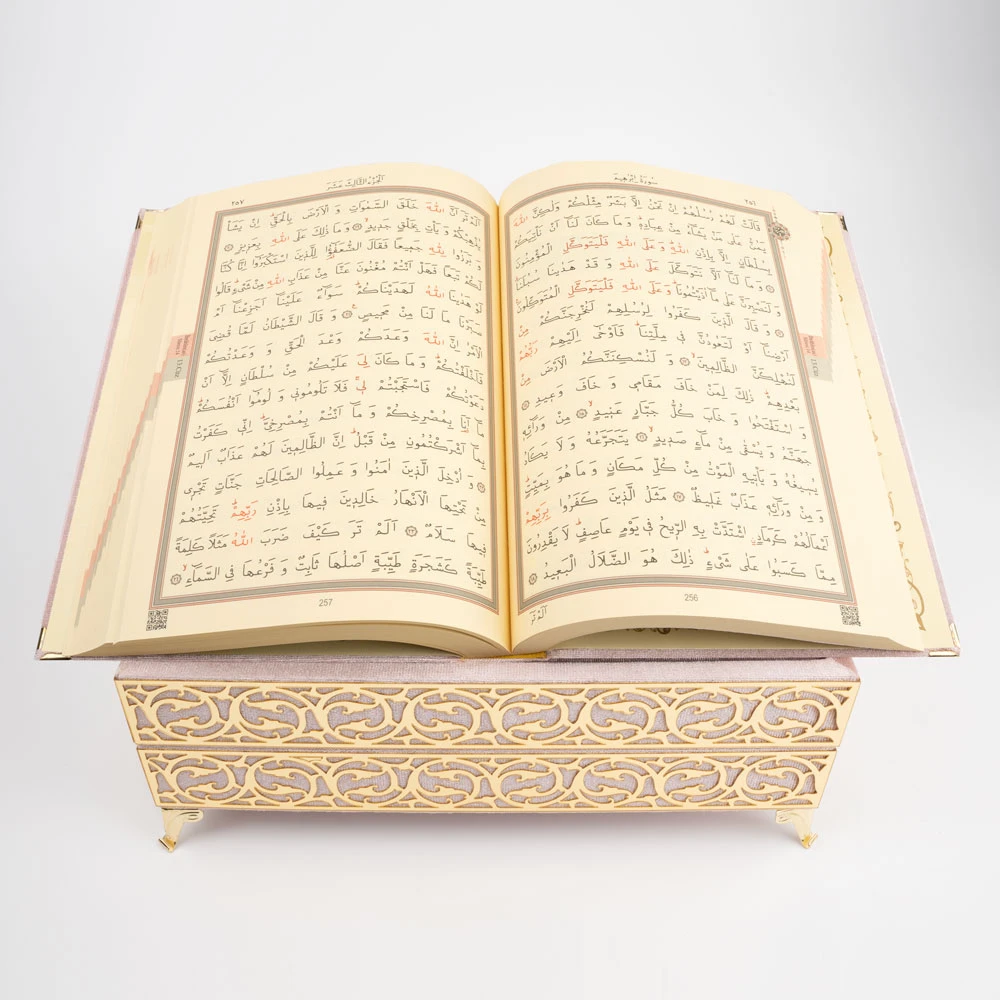 سورة ابرهيم
٢٥٦
قَالَتْ لَهُمْ رُسُلُهُمْ اِنْ نَحْنُ اِلَّا بَشَرٌ مِثْلُكُمْ وَلٰكِنَّ اللّٰهَ
يَمُنُّ عَلٰى مَنْ يَشَٓاءُ مِنْ عِبَادِهٖۜ وَمَا كَانَ لَنَٓا اَنْ نَأْتِيَكُمْ
بِسُلْطَانٍ اِلَّا بِاِذْنِ اللّٰهِۜ وَعَلَى اللّٰهِ فَلْيَتَوَكَّلِ الْمُؤْمِنُونَ
وَمَا لَنَٓا اَلَّا نَتَوَكَّلَ عَلَى اللّٰهِ وَقَدْ هَدٰينَا سُبُلَنَاۜ
وَلَنَصْبِرَنَّ عَلٰى مَٓا اٰذَيْتُمُونَاۜ وَعَلَى اللّٰهِ فَلْيَتَوَكَّلِ الْمُتَوَكِّلُونَ
وَقَالَ الَّذٖينَ كَفَرُوا لِرُسُلِهِمْ لَنُخْرِجَنَّكُمْ مِنْ
اَرْضِنَٓا اَوْ لَتَعُودُنَّ فٖي مِلَّتِنَاۜ فَاَوْحٰٓى اِلَيْهِمْ رَبُّهُمْ
لَنُهْلِكَنَّ الظَّالِمٖينَ وَلَنُسْكِنَنَّكُمُ الْاَرْضَ مِنْ
بَعْدِهِمْۜ ذٰلِكَ لِمَنْ خَافَ مَقَامٖي وَخَافَ وَعٖيدِ
وَاسْتَفْتَحُوا وَخَابَ كُلُّ جَبَّارٍ عَنٖيدٍۙ مِنْ وَرَٓائِهٖ
جَهَنَّمُ وَيُسْقٰى مِنْ مَٓاءٍ صَدٖيدٍۙ يَتَجَرَّعُهُ وَلَا يَكَادُ
يُسٖيغُهُ وَيَأْتٖيهِ الْمَوْتُ مِنْ كُلِّ مَكَانٍ وَمَا هُوَ بِمَيِّتٍۜ
وَمِنْ وَرَٓائِهٖ عَذَابٌ غَلٖيظٌ مَثَلُ الَّذٖينَ كَفَرُوا بِرَبِّهِمْ
اَعْمَالُهُمْ كَرَمَادٍۨ اشْتَدَّتْ بِهِ الرّٖيحُ فٖي يَوْمٍ عَاصِفٍۜ لَا يَقْدِرُونَ
مِمَّا كَسَبُوا عَلٰى شَيْءٍۜ ذٰلِكَ هُوَ الضَّلَالُ الْبَعٖيدُ
256
اَلَمْ تَرَ
الجزء الثالث عشر
٢٥٧
اَلَمْ تَرَ اَنَّ اللّٰهَ خَلَقَ السَّمٰوَاتِ وَالْاَرْضَ بِالْحَقِّۜ اِنْ يَشَأْ
يُذْهِبْكُمْ وَيَأْتِ بِخَلْقٍ جَدٖيدٍۙ وَمَا ذٰلِكَ عَلَى اللّٰهِ بِعَزٖيزٍ
وَبَرَزُوا لِلّٰهِ جَمٖيعاً فَقَالَ الضُّعَفٰٓؤُا لِلَّذٖينَ اسْتَكْبَرُٓوا اِنَّا كُنَّا
لَكُمْ تَبَعاً فَهَلْ اَنْتُمْ مُغْنُونَ عَنَّا مِنْ عَذَابِ اللّٰهِ مِنْ شَيْءٍۜ قَالُوا
لَوْ هَدٰينَا اللّٰهُ لَهَدَيْنَاكُمْۜ سَوَٓاءٌ عَلَيْنَٓا اَجَزِعْنَٓا اَمْ
صَبَرْنَا مَا لَنَا مِنْ مَحٖيصٍ وَقَالَ الشَّيْطَانُ لَمَّا قُضِيَ
الْاَمْرُ اِنَّ اللّٰهَ وَعَدَكُمْ وَعْدَ الْحَقِّ وَوَعَدْتُكُمْ
فَاَخْلَفْتُكُمْۜ وَمَا كَانَ لِيَ عَلَيْكُمْ مِنْ سُلْطَانٍ اِلَّٓا اَنْ
دَعَوْتُكُمْ فَاسْتَجَبْتُمْ لٖيۚ فَلَا تَلُومُونٖي وَلُومُٓوا اَنْفُسَكُمْۜ
مَٓا اَنَا۬ بِمُصْرِخِكُمْ وَمَٓا اَنْتُمْ بِمُصْرِخِيَّۜ اِنّٖي كَفَرْتُ
بِمَٓا اَشْرَكْتُمُونِ مِنْ قَبْلُۜ اِنَّ الظَّالِمٖينَ لَهُمْ عَذَابٌ اَلٖيمٌ
وَاُدْخِلَ الَّذٖينَ اٰمَنُوا وَعَمِلُوا الصَّالِحَاتِ جَنَّاتٍ تَجْرٖي
مِنْ تَحْتِهَا الْاَنْهَارُ خَالِدٖينَ فٖيهَا بِاِذْنِ رَبِّهِمْۜ تَحِيَّتُهُمْ
فٖيهَا سَلَامٌ اَلَمْ تَرَ كَيْفَ ضَرَبَ اللّٰهُ مَثَلاً كَلِمَةً
طَيِّبَةً كَشَجَرَةٍ طَيِّبَةٍ اَصْلُهَا ثَابِتٌ وَفَرْعُهَا فِي السَّمَٓاءِۙ
257